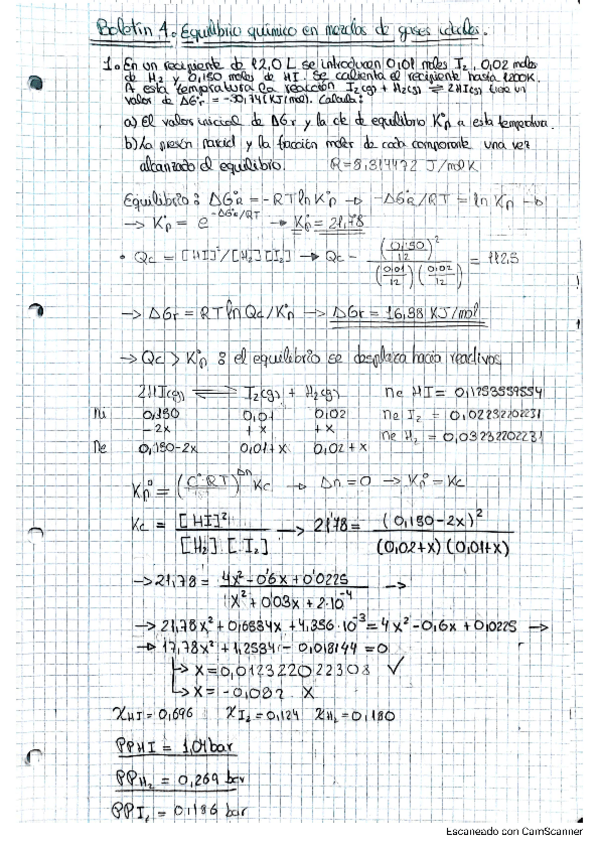 Boletín 1. Equilibrio químico en mezclas de gases ideales.
1. En un recipiente de 12,0 L se introducen 0,01 moles I₂, 0,02 moles
de H₂ y 0,150 moles de HI. Se calienta el recipiente hasta 1200K.
A esta temperatura la reacción I₂(g) + H₂(g) ⇌ 2HI(g) tiene un
valor de ΔG°r = (KJ/mol). Calcula:
a) El valor inicial de ΔGr y la cte de equilibrio K°p a esta temperatura.
b) La presión parcial y la fracción molar de cada componente una vez
alcanzado el equilibrio. R=8,314472 J/molK
Equilibrio: ΔG°r = -RT ln K°p → -ΔG°r/RT = ln K°p →
→ K°p = e^(-ΔG°r/RT) → K°p = 21,78
• Qc = [HI]²/[H₂][I₂] → Qc = (0,150/12)² / (0,01/12)(0,02/12) = 112,5
→ ΔGr = RT ln Qc/K°p → ΔGr = 16,38 KJ/mol
→ Qc > K°p : el equilibrio se desplaza hacia reactivos
2HI(g) ⇌ I₂(g) + H₂(g) ne HI = 0,1253559554
ni 0,150 0,01 0,02 ne I₂ = 0,02232202231
-2x +x +x ne H₂ = 0,03232202231
ne 0,150-2x 0,01+x 0,02+x
K°p = (C°RT)^Δn Kc → Δn = 0 → K°p = Kc
Kc = [HI]² / [H₂][I₂] → 21'78 = (0,150-2x)² / (0,02+x)(0,01+x)
→ 21,78 = 4x² - 0'6x + 0'0225 / x² + 0'03x + 2·10⁻⁴ →
→ 21,78x² + 0,6534x + 4,356·10⁻³ = 4x² - 0,6x + 0,0225 →
→ 17,78x² + 1,2534 - 0,018144 = 0
↳ x = 0,012322022308 ✓
↳ x = -0,082 X
χHI = 0,696 χI₂ = 0,124 χH₂ = 0,180
PPHI = 1,04 bar
PPH₂ = 0,269 bar
PPI₂ = 0,186 bar
Escaneado con CamScanner